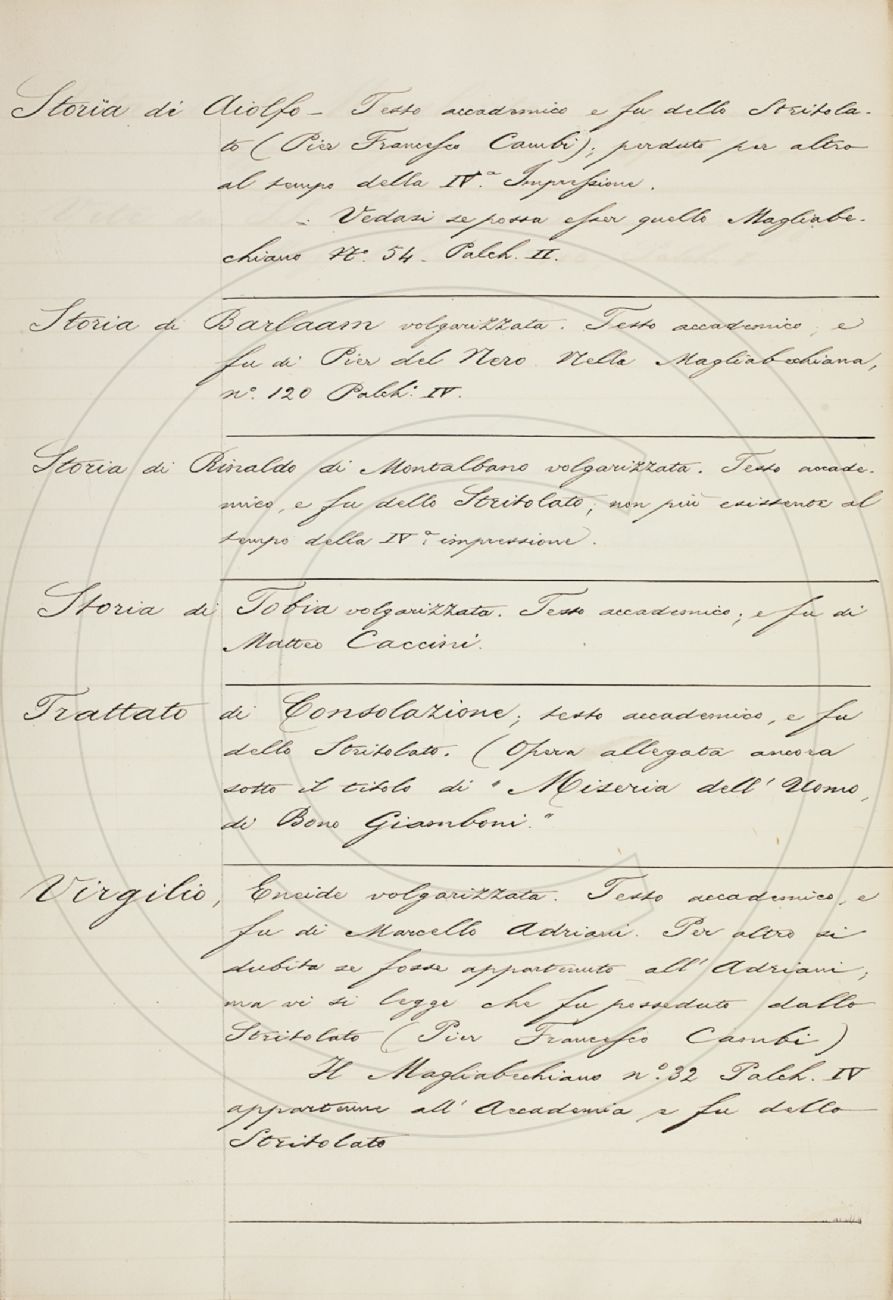 Storia di Aiolfo – Testo accademico e fu dello Stritola-
to (Pier Francesco Cambi); perduto per altro
al tempo della IV.ª Impressione.
– Vedasi se possa esser quello Magliabe-
chiano N.º 54 – Palch. II.
Storia di Barlaam volgarizzata. Testo accademico; e
fu di Pier del Nero. Nella Magliabechiana,
n.º 120 Palch: IV.
Storia di Rinaldo di Montalbano volgarizzata. Testo accade-
mico, e fu dello Stritolato; non più esistente al
tempo della IV.ª impressione.
Storia di Tobia volgarizzata. Testo accademico; e fu di
Matteo Caccini.
Trattato di Consolazione; testo accademico, e fu
dello Stritolato. (Opera allegata ancora
sotto il titolo di "Miseria dell' Uomo,
di Bono Giamboni."
Virgilio, Eneide volgarizzata. Testo accademico, e
fu di Marcello Adriani. Per altro si
dubita se fosse appartenuto all' Adriani;
ma vi si legge che fu posseduto dallo
Stritolato (Pier Francesco Cambi)
Il Magliabechiano n.º 32 Palch. IV
appartenne all' Accademia e fu dello
Stritolato